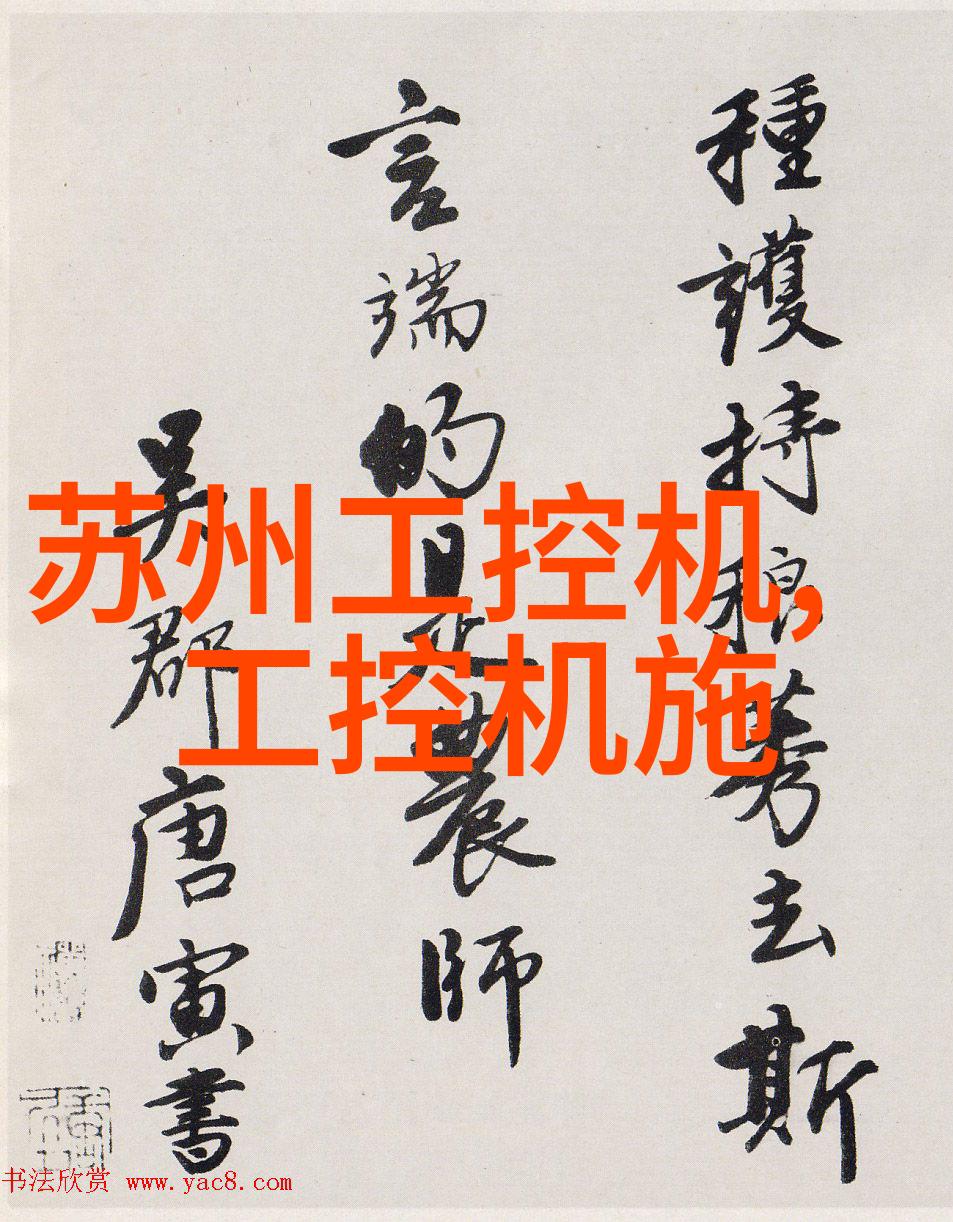 種護持稂莠去斯
言端的是農師
吳郡唐寅書
苏州工控机,
工控机施
书法欣赏 www.yac8.com